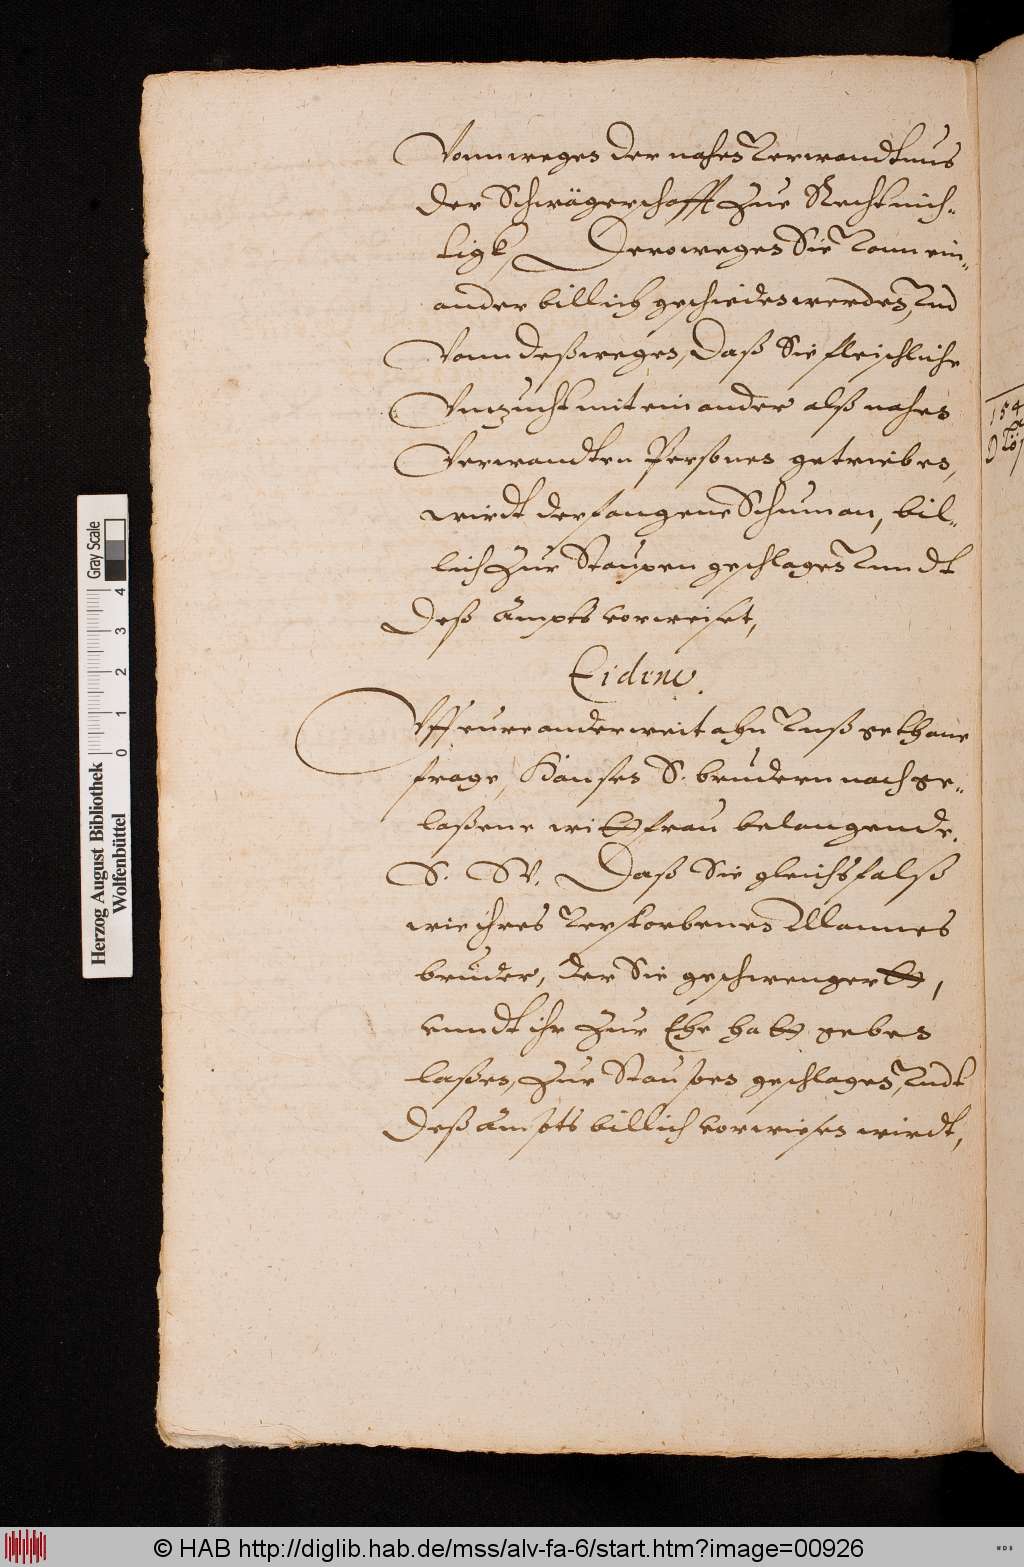 Vonn wegen der nahen Verwandtnus
der Schwägerschafft zue Recht nich-
tigk, Derowegen Sie Vonn ein-
ander billich geschieden werden, Vnd
Vonn deßwegen, Daß Sie fleischliche
Vnzucht mit einander alß nahen
Verwandten Personen getrieben,
wirdt der fangene Schuman, bil-
lich zur Staupen geschlagen Vnndt
deß ämpts vorweiset,
Eidem.
Vff eure anderweit ahn Vnß gethane
frage, Hansen S. brudern nachge-
laßene witfrau belangende.
S. W. Daß Sie gleichsfalß
wie ihres Verstorbenen Mannes
bruder, der Sie geschwengert,
vnndt ihr zur Ehe hatt geben
laßen, zur Staupen geschlagen, Vndt
deß ämpts billich vorwiesen wirdt,
154
Herzog August Bibliothek
Wolfenbüttel
Gray Scale
0 1 2 3 4
© HAB http://diglib.hab.de/mss/alv-fa-6/start.htm?image=00926